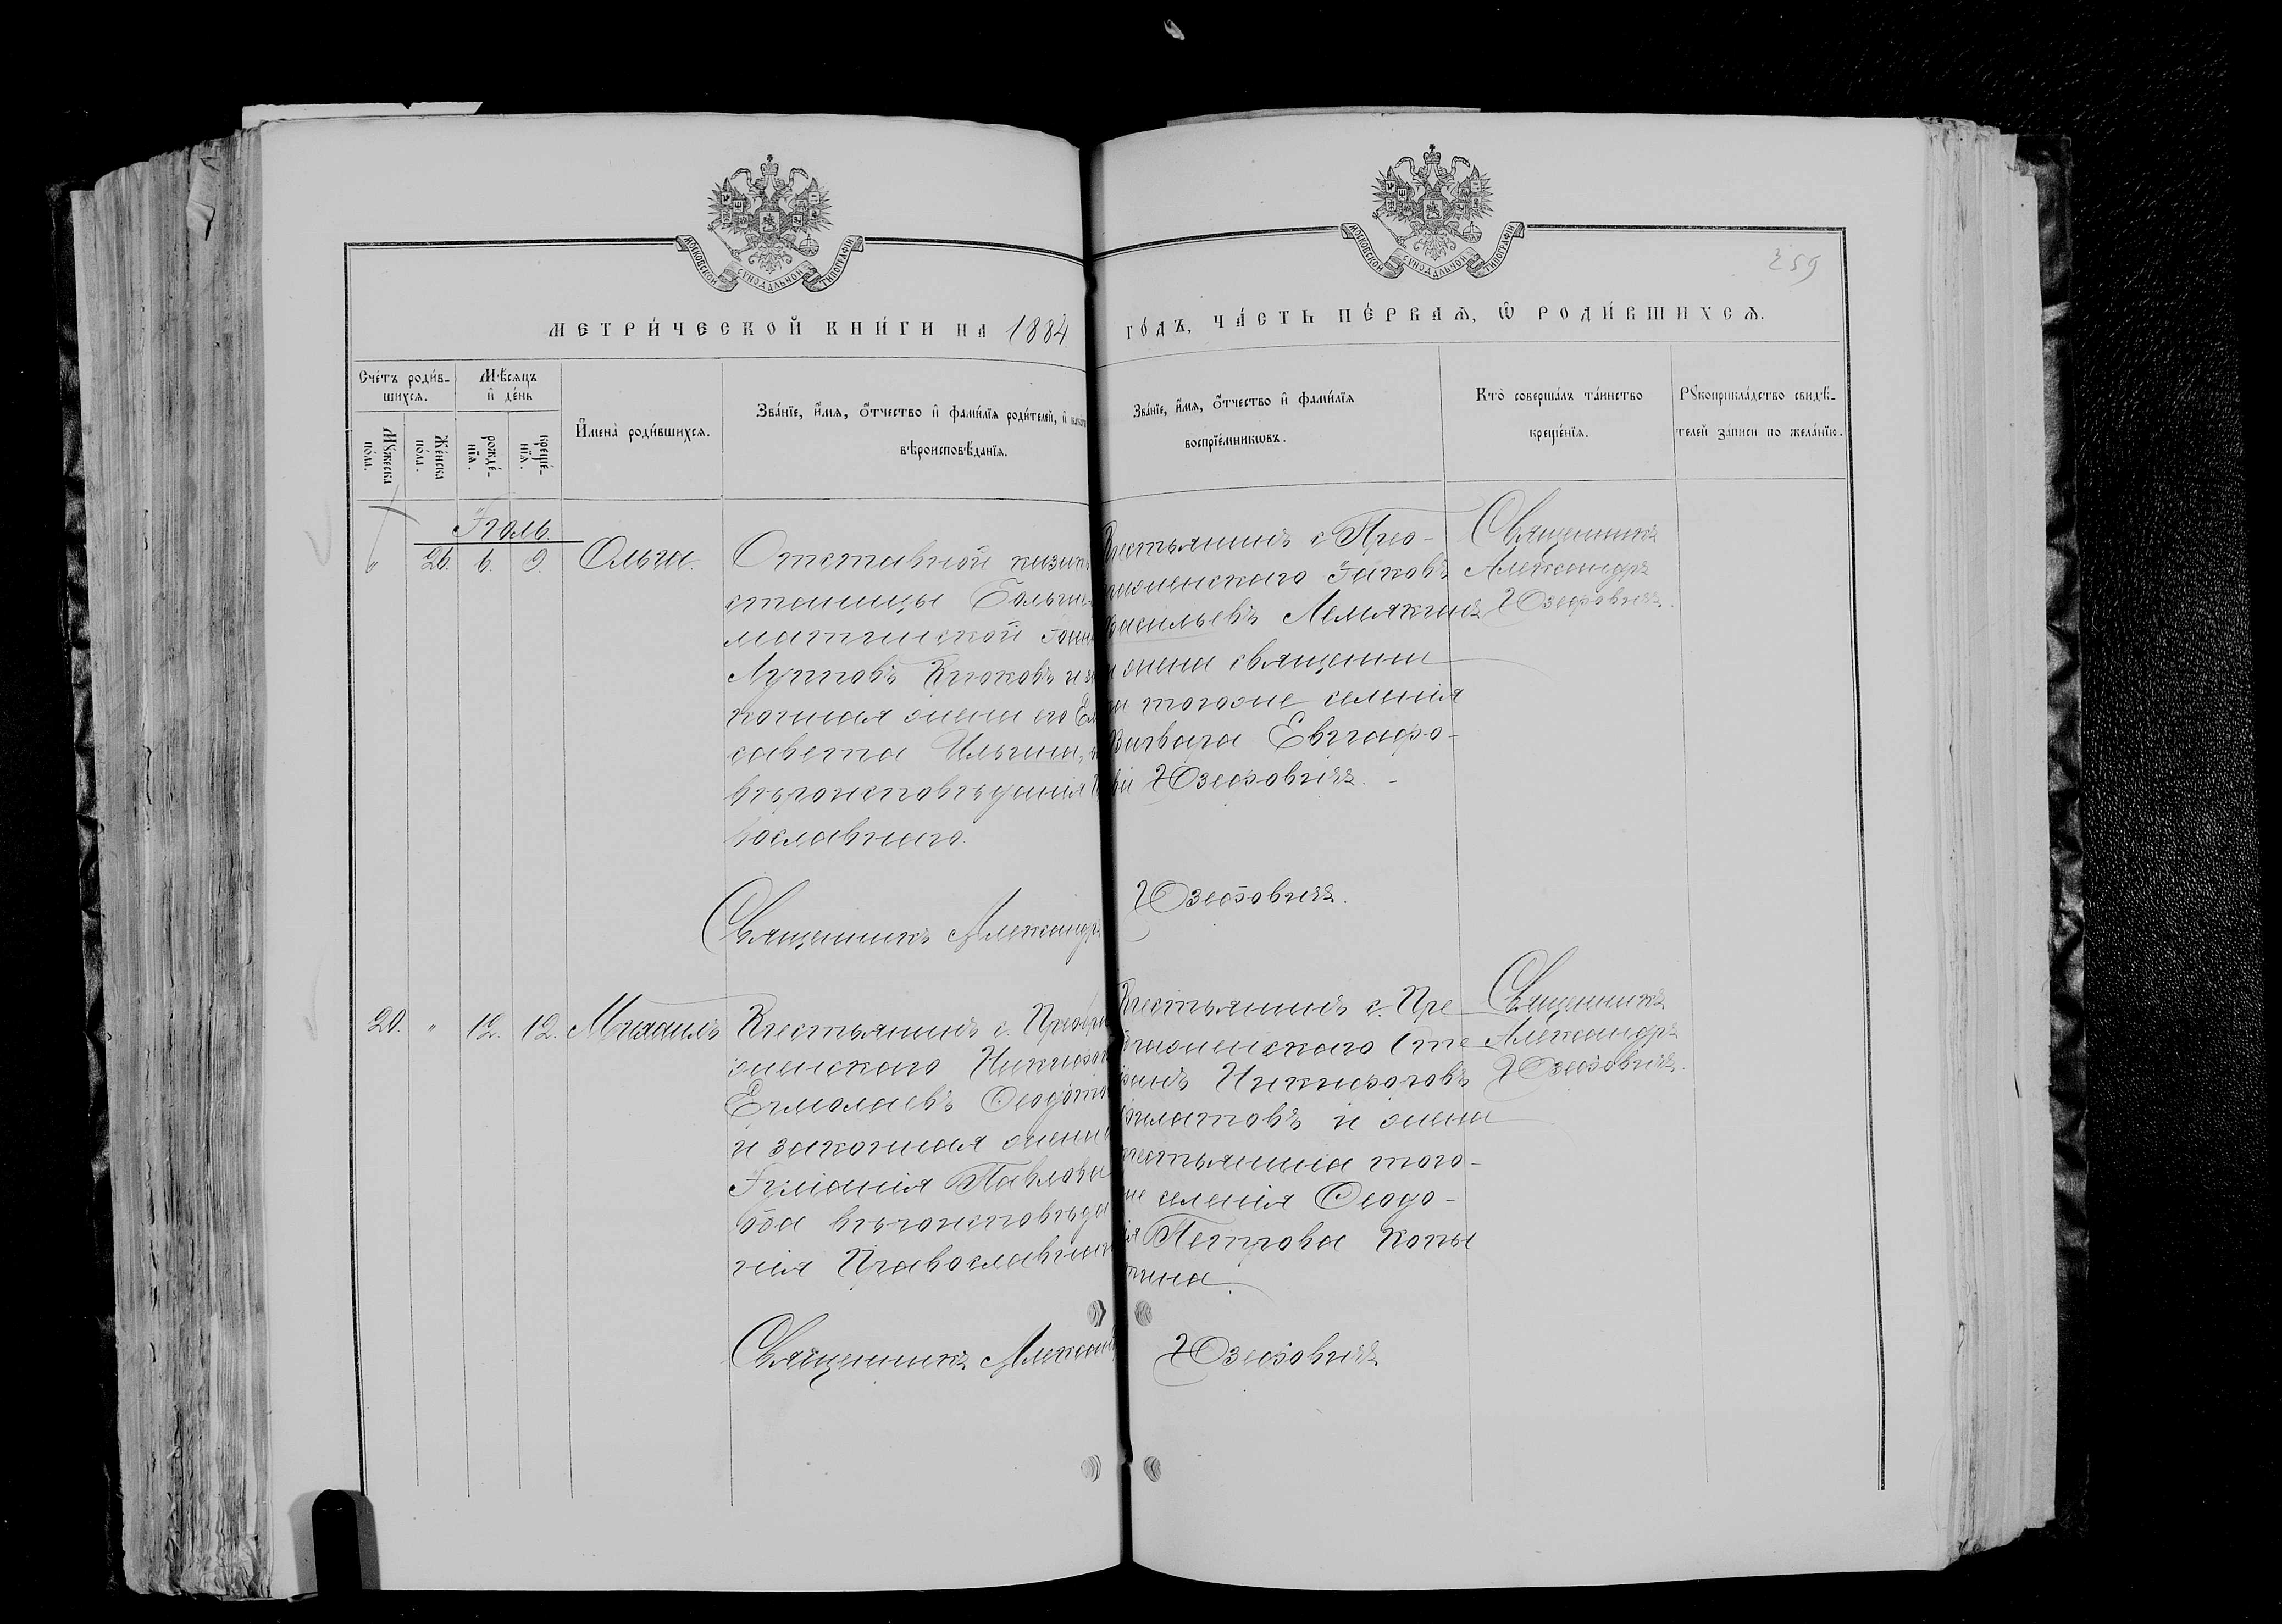 МОСКОВСКОЙ СѴНОДАЛЬНОЙ ТИПОГРАФІИ
МОСКОВСКОЙ СѴНОДАЛЬНОЙ ТИПОГРАФІИ
259
МЕТРИ́ЧЕСКОЙ КНИ́ГИ НА 1884 ГО́ДЪ, ЧА́СТЬ ПЕ́РВАѦ, Ѡ҆ РОДИ́ВШИХСѦ.
Сче́тъ роди́в-
шихсѧ.
Мѣ́сѧцъ
и҆ де́нь
Мꙋ́жеска по́ла.
Же́нска по́ла.
рожде́-
нїѧ.
креще́-
нїѧ.
И҆мена̀ роди́вшихсѧ.
Зва́нїе, и҆́мѧ, ѻ҆́тчество и҆ фами́лїѧ роди́телей, и҆
вѣроисповѣ́данїѧ.
Зва́нїе, и҆́мѧ, ѻ҆́тчество и҆ фами́лїѧ
воспрїе́мникѡвъ.
Кто̀ соверша́лъ та́инство
креще́нїѧ.
Рꙋкоприкла́дство свидѣ́-
телей за́писи по жела́нїю.
Іюль.
" 26. 6. 9. Ольга.
Отставной казакъ
станицы Больше-
матинской
Лупповъ Клюковъ и за
конная жена его Ели
савета Ильина,
вѣроисповѣданія П
вославнаго.
Крестьянинъ с. Прео-
браженскаго Іаковъ
Васильевъ Лемякинъ
и жена священни
ка тогоже селенія
Варвара Евграфо-
ва Юзефовичъ. -
Священникъ
Александръ
Юзефовичъ.
Священникъ Александръ Юзефовичъ.
20. " 12. 12. Михаилъ
Крестьянинъ с. Преобра
женскаго Никифоръ
Ермолаевъ Ѳедото
и законная жена
Іуліанія Павлова
оба вѣроисповѣда
нія Православнаго
Крестьянинъ с. Пре
ображенскаго Сте
фанъ Никифоровъ
Филатовъ и жена
крестьянина того-
же селенія Ѳеодо-
ія Петрова Копы
тина.
Священникъ
Александръ
Юзефовичъ.
Священникъ Александръ Юзефовичъ